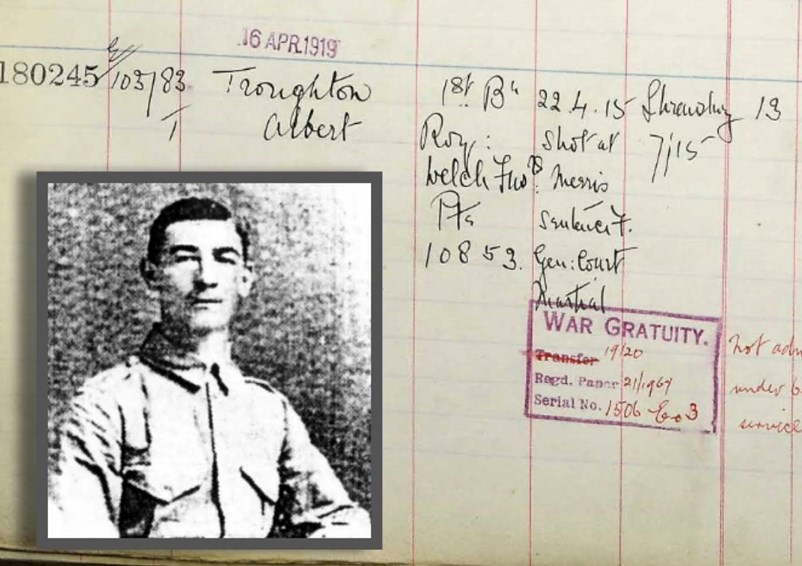 16 APR 1919
180245
103183
T
Troughton
Albert
1st Bn
Roy:
Welch Fus:
Pte
10853.
22.4.15
Shot at
sentence
Gen: Court
Martial
Shrewsbury
7/15
13
WAR GRATUITY.
Transfer 19/20
Regd. Paper 21/1967
Serial No. 1506
3
not adm
under
service